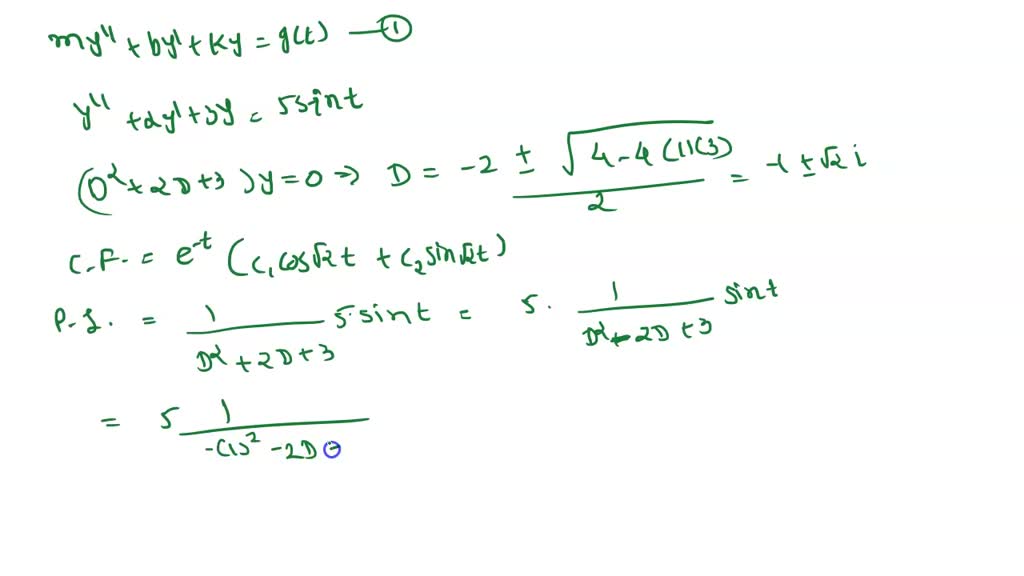 my'' + by' + Ky = g(t) — ①
y'' + 2y' + 3y = 5sint
(D² + 2D + 3)y = 0 ⇒ D = -2 ± √(4-4(1)(3)) / 2 = -1 ± √2 i
C.F. = e^-t (C₁ cos√2t + C₂ sin√2t)
P.I. = 1/(D² + 2D + 3) 5·sint = 5· 1/(D² + 2D + 3) sint
= 5 1/(-(1)² - 2D